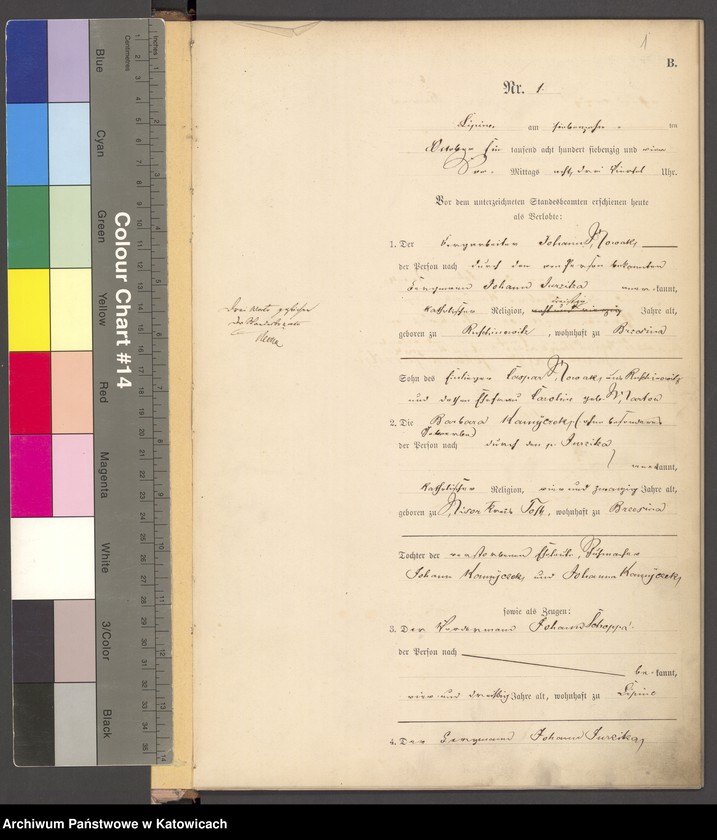 B.
Nr. 1.
Lipine am siebenzehn im
October Ein tausend acht hundert siebenzig und vier
Vor- Mittags acht drei Viertel Uhr.
Vor dem unterzeichneten Standesbeamten erschienen heute
als Verlobte:
1. Der Bergarbeiter Johann Nowak,
der Person nach durch den von Person bekannten
Bergmann Johann Jurzika anerkannt,
dreißig
katholischer Religion, Jahre alt,
geboren zu, wohnhaft zu Brzesina
Drei Worte gestrichen
der Standesbeamte
Sohn des Einliegers Caspar Nowak, aus
und dessen Ehefrau Caroline geb.
2. Die Barbara (ohne besonderes
Gewerbe)
der Person nach durch den p. Jurzika
anerkannt,
katholischer Religion, vier und zwanzig Jahre alt,
geboren zu Kreis Tost, wohnhaft zu Brzesina
Tochter der verstorbenen Eheleute,
Johann und Johanna
sowie als Zeugen:
3. Der Johann Schoppa
der Person nach
be-kannt,
vier und dreißig Jahre alt, wohnhaft zu Lipine
4. Der Bergmann Johann Jurzika,
Colour Chart #14
Blue
Cyan
Green
Yellow
Red
Magenta
White
3/Color
Black
Centimetres
Inches
Archiwum Państwowe w Katowicach